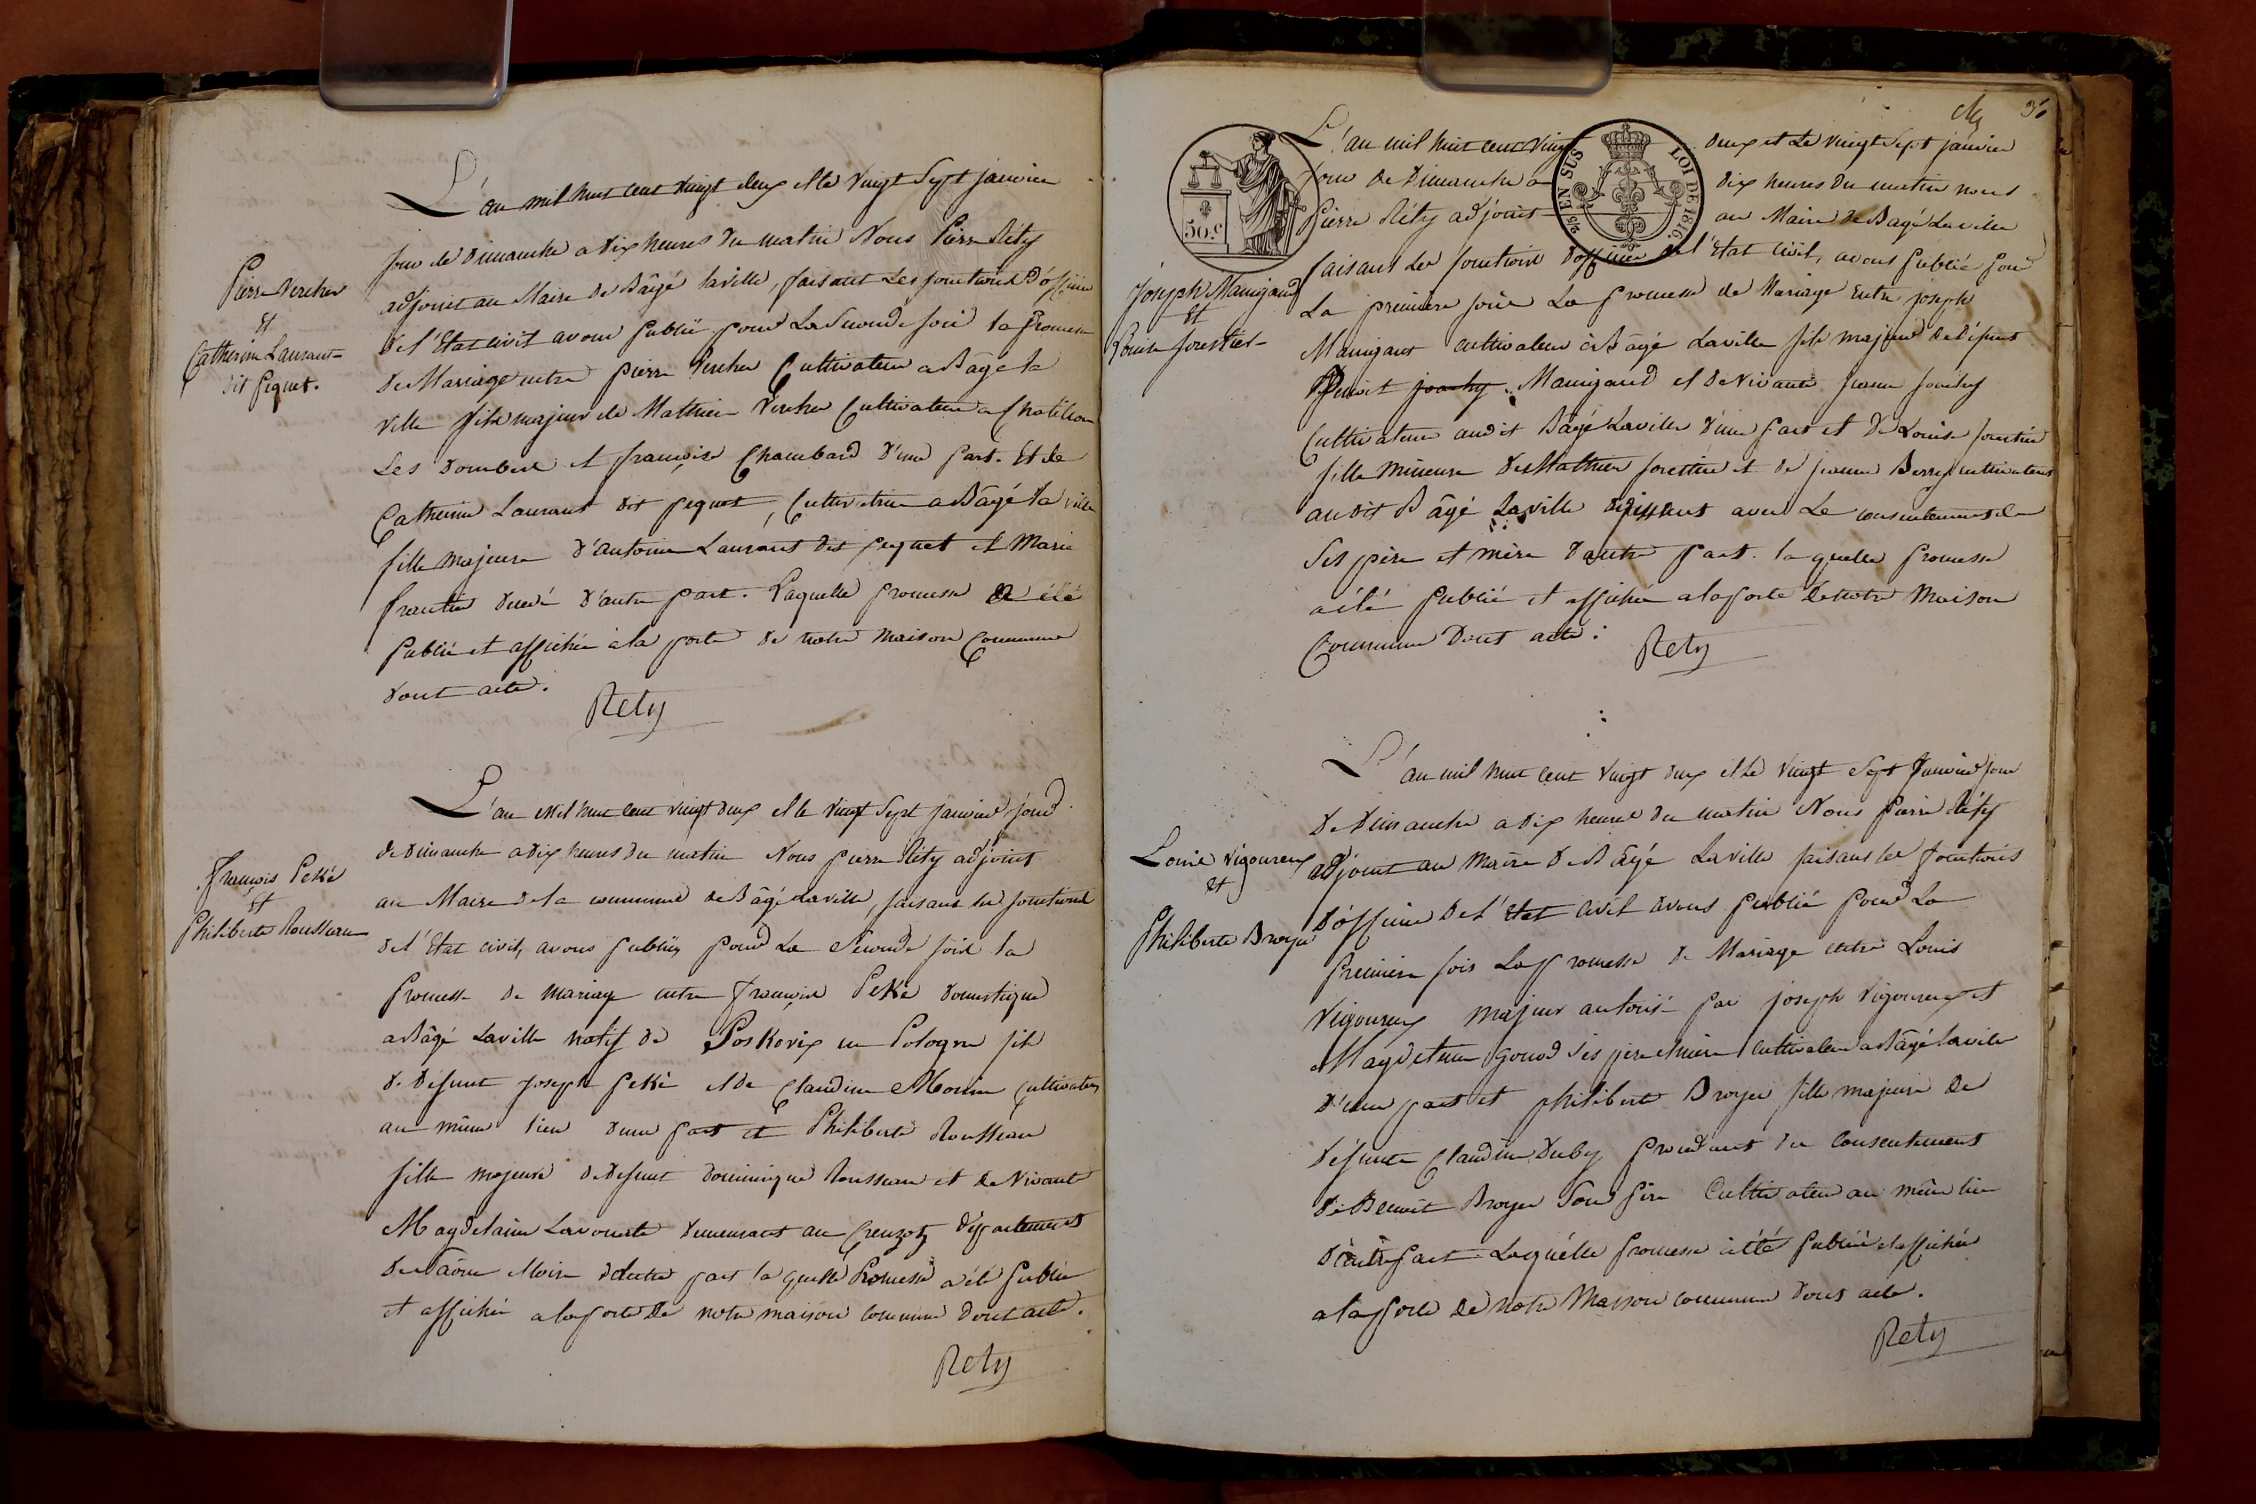 L'an mil huit cent vingt deux et le vingt Sept janvier
jour de Dimanche a dix heures du matin Nous Pierre Réty
adjoint au Maire de Bâgé laville, faisant Les fonctions d'officier
de l'Etat civil avons publié pour La Seconde fois la promesse
de Mariage entre pierre Vercher Cultivateur a Bâgé la
ville fils majeur de Mathieu Vercher Cultivateur a Chatillon
Les Dombes et françoise Chambard d'une part. Et de
Catherine Laurant dit piquet, Cultivatrice a Bâgé la ville
fille majeure d'antoine Laurant dit piquet et Marie
d'autre part. Laquelle promesse a été
publié et affichée à la porte de notre maison Commune
dont acte.
Rety
Pierre Vercher
Et
Catherine Laurant
dit piquet.
L'an mil huit cent vingt deux et le vingt Sept janvier jour
de Dimanche a dix heures du matin Nous pierre Réty adjoint
au Maire de la commune de Bâgé Laville, faisant les fonctions
de l'Etat civil, avons publiés pour La Seconde fois la
promesse de mariage entre françois Pekké domestique
a Bâgé Laville natif de Poskovix en Pologne fils
de défunt Joseph pekké et de Claudine Morin Cultivateurs
au même lieu d'une part et Philiberte Rousseau
fille majeure de defunt dominique Rousseau et de Vivante
Magdelaine demeurant au Creuzot département
de Saône et Loire d'autre part la quelle Promesse a été publiée
et affichée a la porte de notre maison commune dont acte.
Rety
François Pekké
Et
Philiberte Rousseau
36
L'an mil huit cent vingt deux et Le vingt Sept janvier
jour de Dimanche a dix heures du matin nous
Pierre Réty adjoint au Maire de Bagé Laville
faisant les fonctions d'officier de l'Etat civil, avons publié pour
La première fois La promesse de Mariage Entre joseph
Manigant cultivateur à Bâgé Laville fils majeur de défunt
Benoit Manigand et de Vivante
Cultivateur audit Bâgé Laville d'une part et de Louise forestier
fille mineure de Mathieu forestier et de jeanne Berry cultivateurs
audit Bâgé Laville agissant avec Le consentement de
Ses père et mère d'autre part. la quelle promesse
a été publié et affichée a la porte de notre Maison
Commune dont acte.
Rety
50.c
2/5 EN SUS
LOI DE 1816.
Joseph Manigand
Et
Louise forestier
L'an mil huit cent vingt deux et le vingt Sept Janvier jour
de Dimanche a dix heures du matin Nous pierre Réty
adjoint au Maire de Bâgé Laville faisant les fonctions
d'officier de L'Etat civil avons publié pour La
première fois La promesse de Mariage entre Louis
Vigoureux majeur autorisé par joseph Vigoureux et
Magdelaine Gonod Ses père et mère Cultivateur a Bâgé laville
d'une part et philiberte Broyer fille majeure de
défunte Claudine Duby procédant du Consentement
de Benoit Broyer Son père Cultivateur au même lieu
d'autre part Laquelle promesse a été publiée et affichée
a la porte de notre Maison commune dont acte.
Rety
Louis Vigoureux
et
Philiberte Broyer